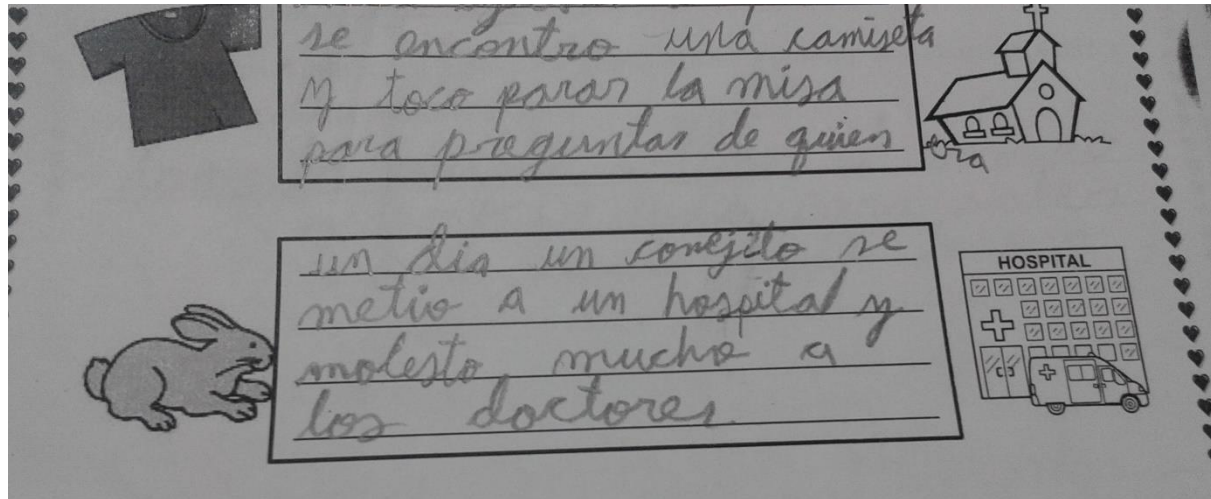 se encontro una camiseta
y toco parar la misa
para preguntar de quien era
un dia un conejito se
metio a un hospital y
molesto mucho a
los doctores.
HOSPITAL